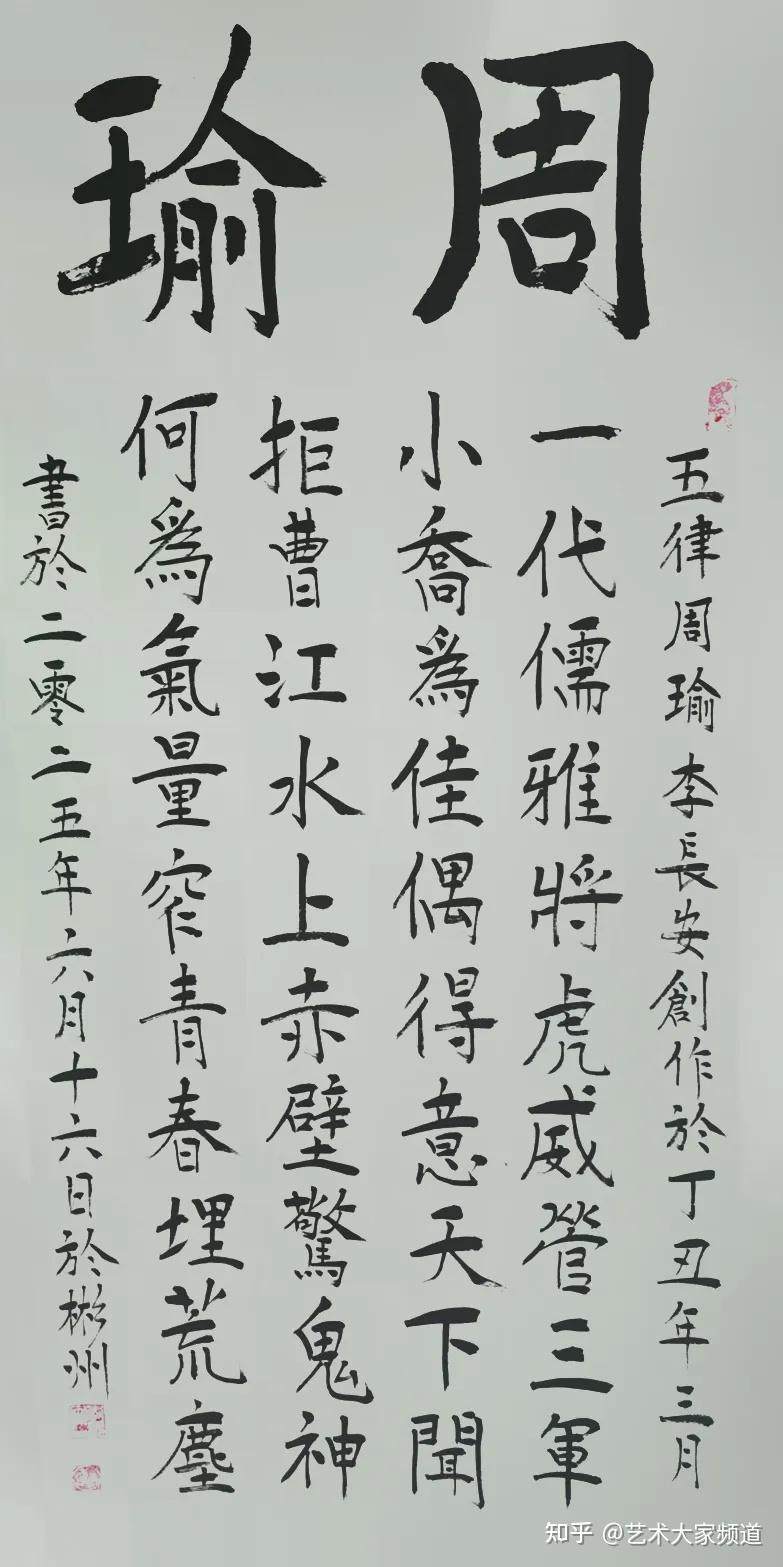 周瑜
五律周瑜李長安創作於丁丑年三月
一代儒雅將虎威營三軍
小喬為佳偶得意天下聞
拒曹江水上赤壁驚鬼神
何為氣量窄青春埋荒塵
書於二零二五年六月十六日於彬州
知乎 @艺术大家频道